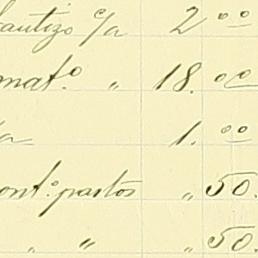 autizo c/a 2 00
mat.o " 18. 00
a 1. 00
ont.o pastos " 50.
" " " 50.